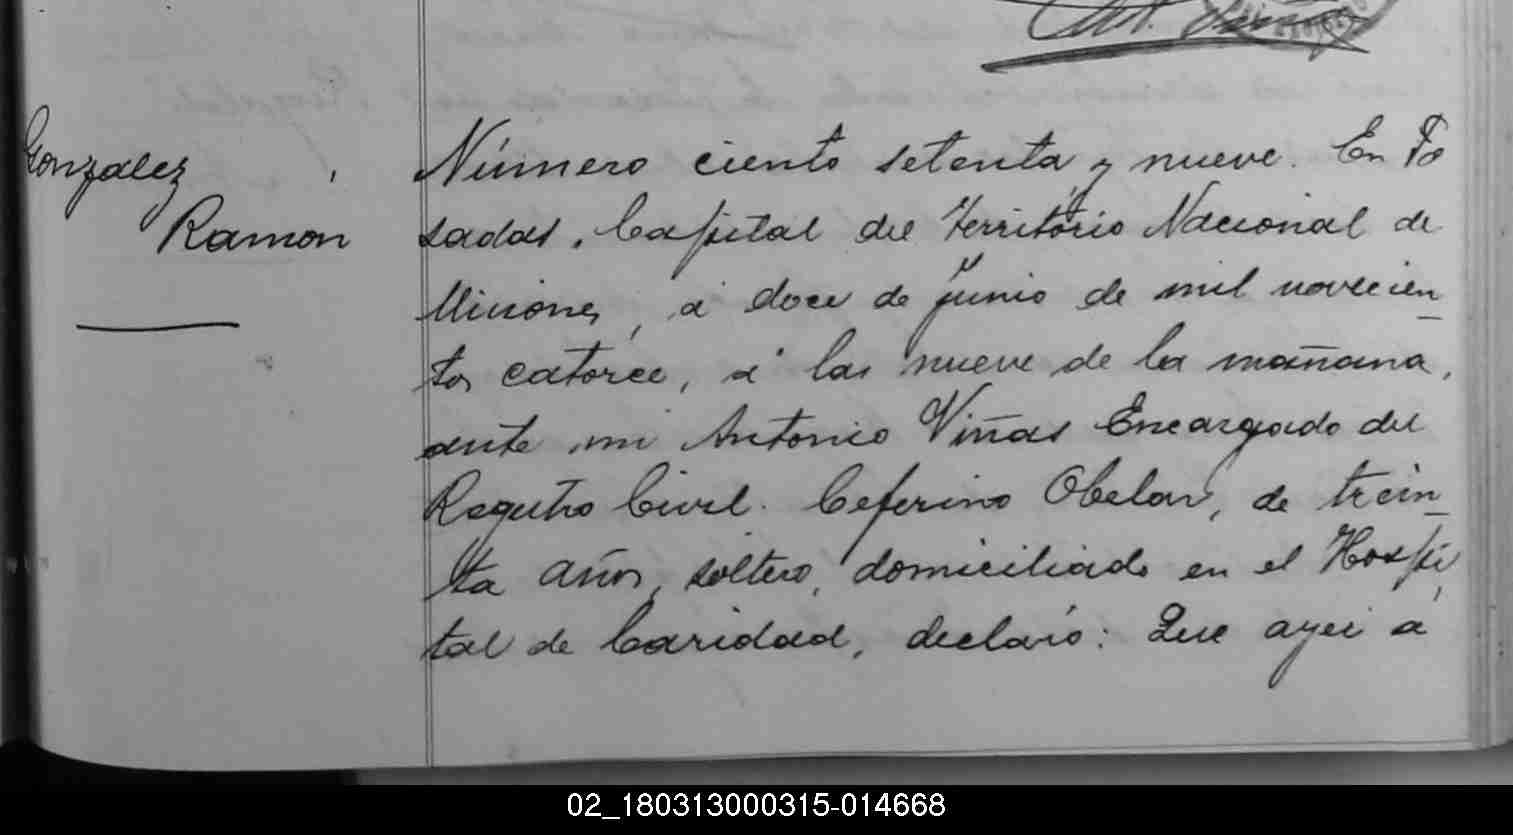 Gonzalez
Ramón
Número ciento setenta y nueve. En Po
sadas, Capital del Territorio Nacional de
Misiones, á doce de junio de mil novecien
tos catorce, á las nueve de la mañana,
ante mi Antonio Viñas Encargado del
Registro Civil. Ceferino Obelar, de trein
ta años, soltero, domiciliado en el Hospi
tal de Caridad, declaró: Que ayer á
02_180313000315-014668